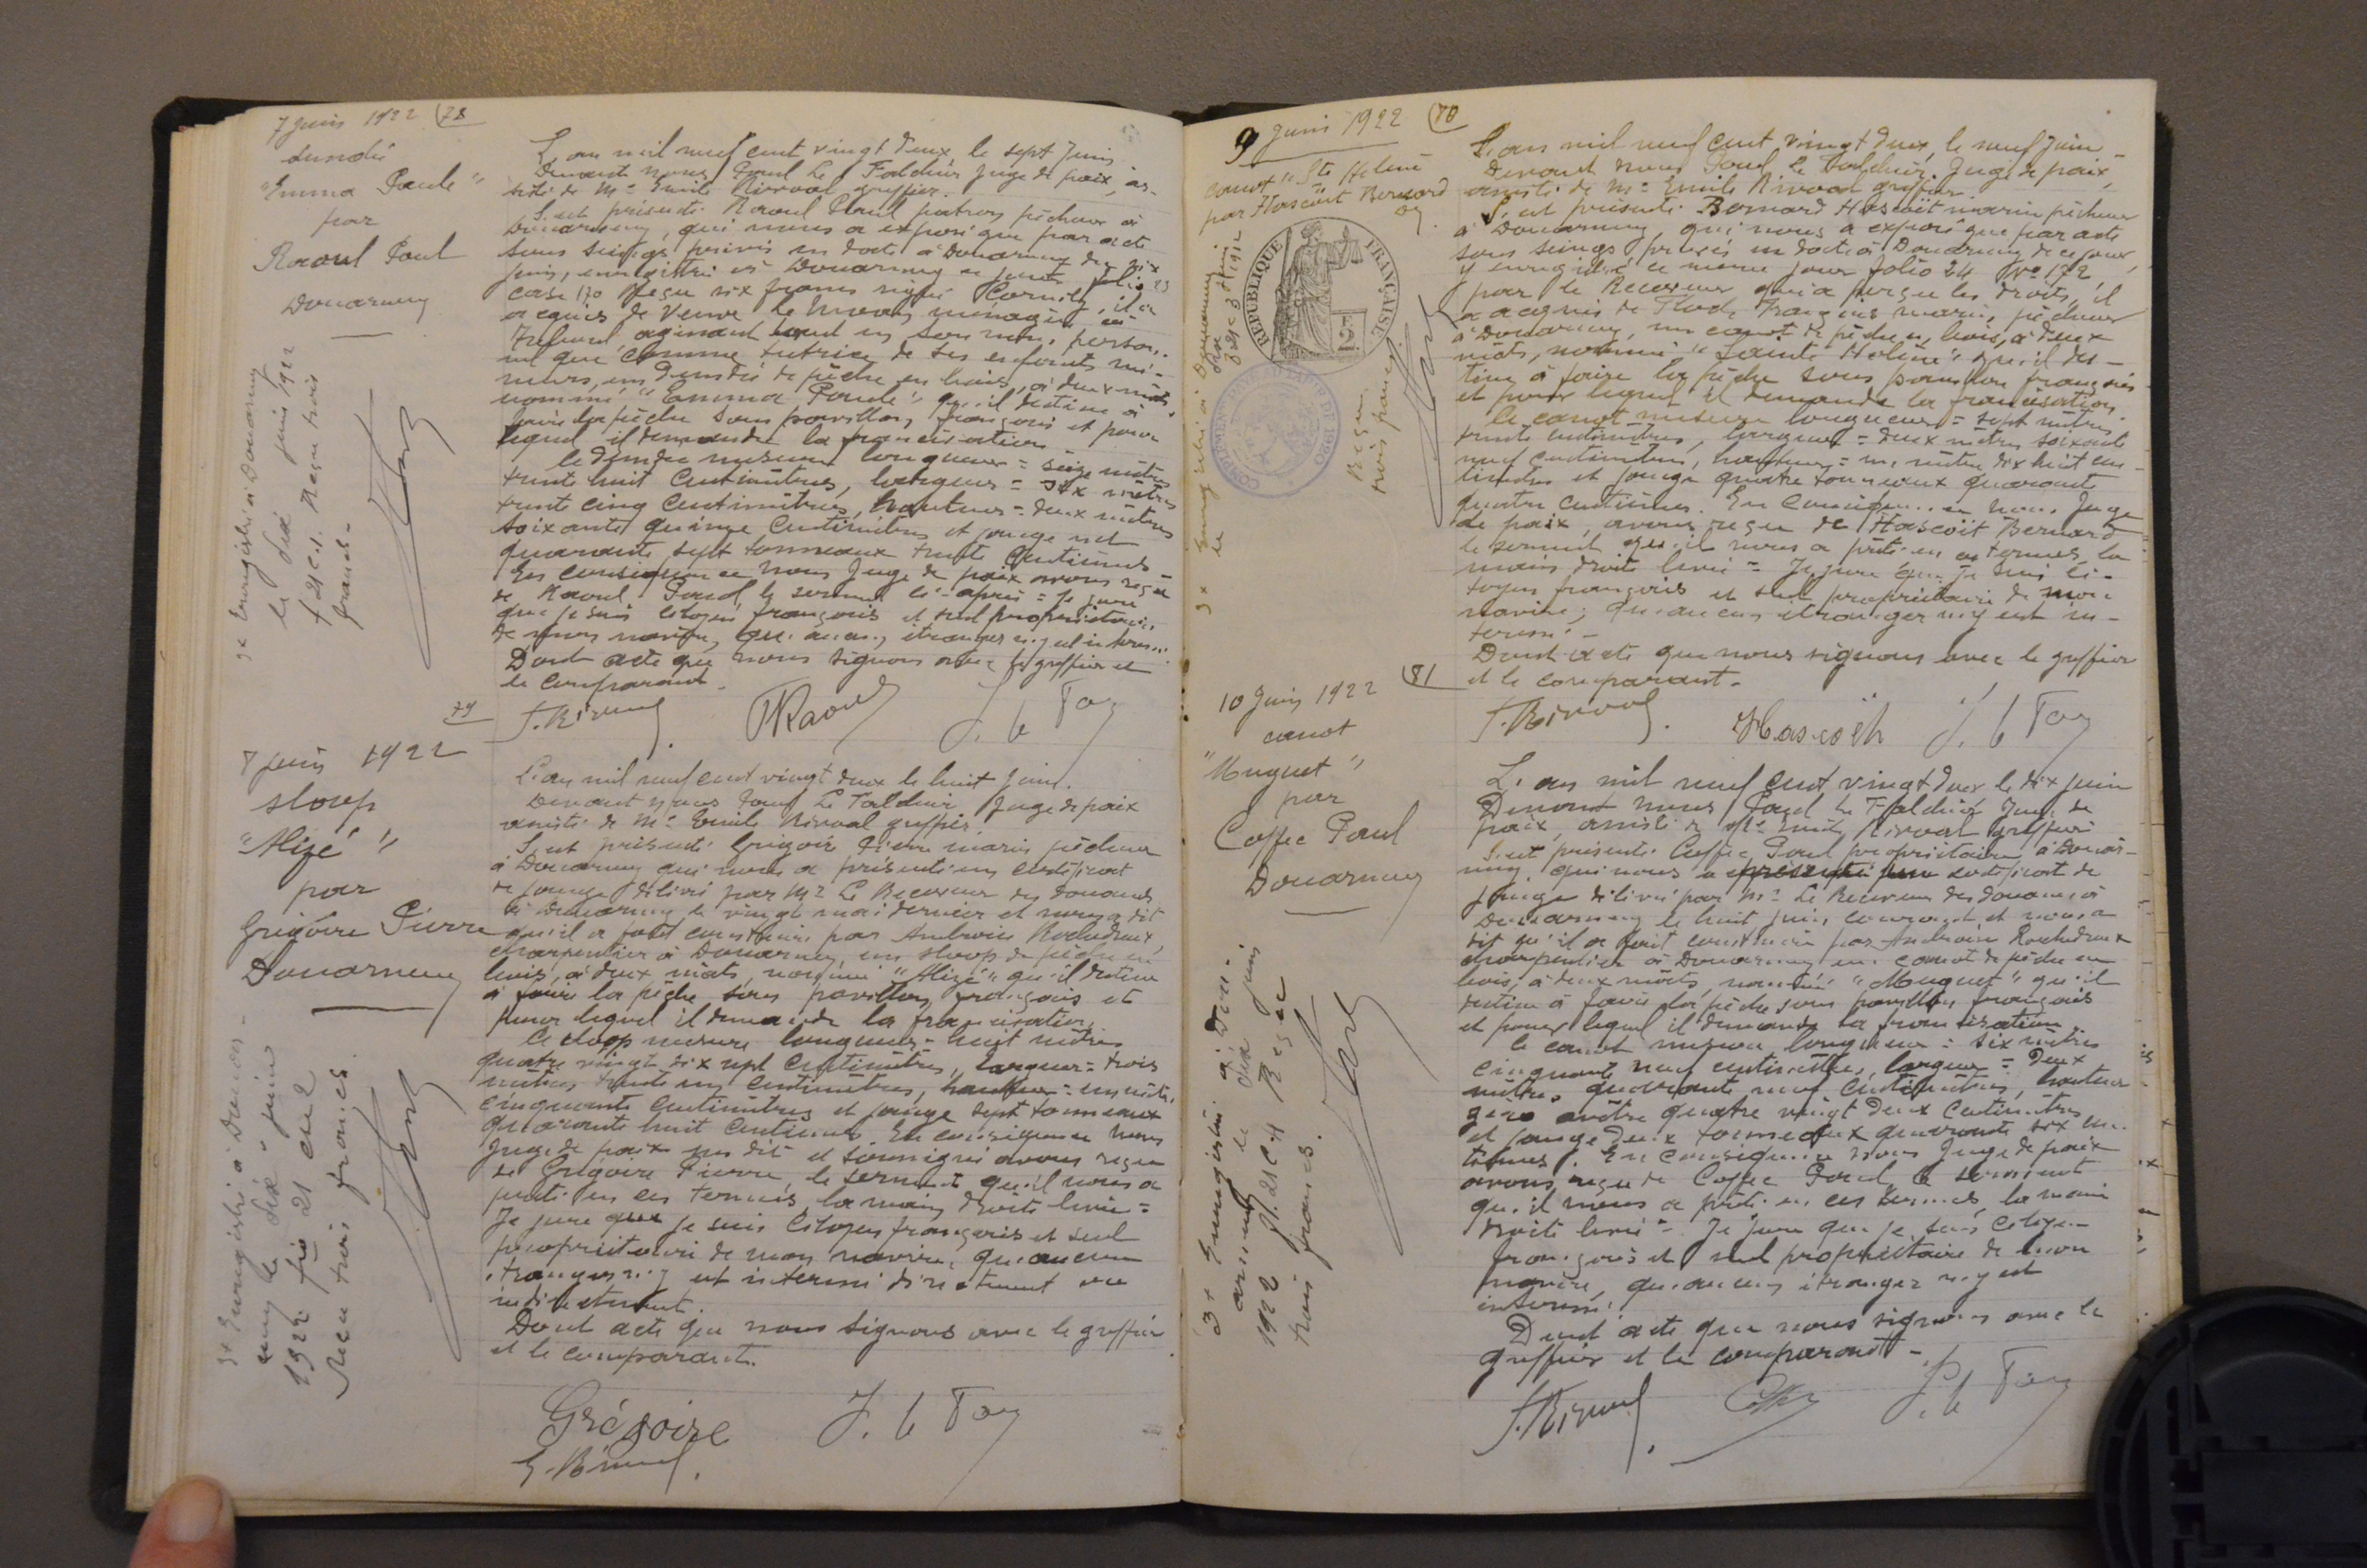 7 juin 1922 (78
dundée
"Emma Paule"
par
Raoul Paul
Douarnenez
gt Enregistré à Douarnenez
le dix juin 1922
f 21 C. 1. Reçu trois
francs -
L'an mil neuf cent vingt deux, le sept juin
Devant nous Paul Le Faldeur juge de paix, as-
sisté de Me Emile Rivoal greffier.
S'est présenté Raoul Paul patron pêcheur à
Douarnenez, qui nous a exposé que par acte
sous seings privés en date à Douarnenez du six
juin, enregistré à Douarnenez ce jour folio 23
case 170 Reçu six francs signé Cornily, il a
acquis de Veuve le ménagère à
Tréboul, agissant tant en son nom person-
nel que comme tutrice de ses enfants mi-
neurs, un dundée de pêche en bois, à deux mâts,
nommé "Emma Paule" qu'il destine à
faire la pêche sous pavillon français et pour
lequel il demande la francisation
le dundee mesure longueur = seize mètres
trente huit Centimètres, largeur = six mètres
trente cinq Centimètres, hauteur = deux mètres
soixante quinze Centimètres et jauge net
quarante sept tonneaux trente Centièmes -
En conséquence Nous Juge de paix avons reçu
de Raoul Paul le serment ci-après = Je jure
que je suis citoyen français et seul propriétaire
de mon navire, qu'aucun étranger n'y est intéres...
Dont acte que nous signons avec le greffier et
le comparant.
E. Rivoal PRaoul P. le Fay
79
7 juin 1922
sloop
"Alizé"
par
Grégoire Pierre
Douarnenez
gt Enregistré à Douar-
nenez le dix juin
1922 fo 21 cn 2
Recu trois francs.
L'an mil neuf cent vingt deux le huit juin.
Devant nous Paul Le Faldeur Juge de paix
assisté de Me Emile Rivoal greffier.
S'est présenté Grégoire Pierre marin pêcheur
à Douarnenez qui nous a présenté un certificat
de jauge délivré par Mr Le Receveur des douanes
à Douarnenez le vingt mai dernier et nous a dit
qu'il a fait construire par Ambroise Rochedreux,
charpentier à Douarnenez, un sloop de pêche en
bois, à deux mâts, nommé "Alizé" qu'il destine
à faire la pêche sous pavillon français et
pour lequel il demande la francisation.
le sloop mesure longueur = huit mètres
quatre vingt dix sept Centimètres, largeur = trois
mètres, trente un Centimètres, hauteur = un mètre,
cinquante Centimètres et jauge sept tonneaux
quarante huit Centièmes. En conséquence nous
Juge de paix sus dit et soussigné avons reçu
de Grégoire Pierre, le serment qu'il nous a
prêté en ces termes la main droite levée =
Je jure que je suis Citoyen français et seul
propriétaire de mon navire, qu'aucun
étranger n'y est intéressé directement ou
indirectement.
Dont acte que nous signons avec le greffier
et le comparant.
Grégoire P. le Fay
E. Rivoal
9 juin 1922 (80
canot "Ste Helene"
par Hascoët Bernard
REPUBLIQUE FRANÇAISE
gt Enregistré à Douarnenez
le dix juin 1922
Reçu
trois francs
L'an mil neuf cent vingt deux, le neuf juin -
Devant nous Paul Le Faldeur, Juge de paix,
assisté de Me Emile Rivoal greffier
S'est présenté Bernard Hascoët marin pêcheur
à Douarnenez, qui nous a exposé que par acte
sous seings privés en date à Douarnenez de ce jour,
y enregistré ce même jour folio 24 No 172,
par le Receveur qui a perçu les droits, il
a acquis de François marin pêcheur
à Douarnenez, un canot de pêche en bois, à deux
mâts, nommé "Sainte Hélène" qu'il des-
tine à faire la pêche sous pavillon français
et pour lequel il demande la francisation.
le canot mesure longueur = sept mètres
trente centimètres, largeur = deux mètres soixante
neuf centimètres, hauteur = un mètre dix huit cen-
timètres et jauge quatre tonneaux quarante
quatre centièmes. En conséquence Nous Juge
de paix, avons reçu de Hascoët Bernard
le serment qu'il nous a prêté en ces termes, la
main droite levée = Je jure que je suis ci-
toyen français et seul propriétaire de mon
navire; qu'aucun étranger n'y est in-
téressé -
Dont acte que nous signons avec le greffier
et le comparant -
E. Rivoal. Hascoëth P. le Fay
(81
10 juin 1922
canot
"Muguet"
par
Coffec Paul
Douarnenez
gt Enregistré à Dou-
arnenez le dix juin
1922 f. 21 C. 4 Reçu
trois francs.
L'an mil neuf cent vingt deux le dix juin
Devant nous Paul Le Faldeur Juge de
paix, assisté de Me Emile Rivoal greffier
S'est présenté Coffec Paul propriétaire à Douar-
nenez, qui nous a présenté un certificat de
jauge délivré par Mr Le Receveur des douanes à
Douarnenez le huit juin courant et nous a
dit qu'il a fait construire par Ambroise Rochedreux
charpentier à Douarnenez un canot de pêche en
bois, à deux mâts, nommé "Muguet" qu'il
destine à faire la pêche sous pavillon français
et pour lequel il demande la francisation.
le canot mesure longueur = six mètres
cinquante neuf centimètres, largeur = deux
mètres quarante neuf Centimètres, hauteur
zéro mètre quatre vingt deux Centimètres
et jauge deux tonneaux quarante six cen-
tièmes. En conséquence Nous Juge de paix
avons reçu de Coffec Paul, le serment
qu'il nous a prêté en ces termes, la main
droite levée = Je jure que je suis Citoyen
français et seul propriétaire de mon
navire, qu'aucun étranger n'y est
intéressé.
Dont acte que nous signons avec le
greffier et le comparant -
E. Rivoal P. le Fay